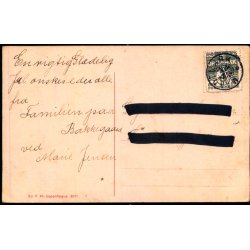 En rigtig Glædelig
Jul ønskes eder alle
fra
Familien paa
Bakkegaarden
ved
Marie Jensen